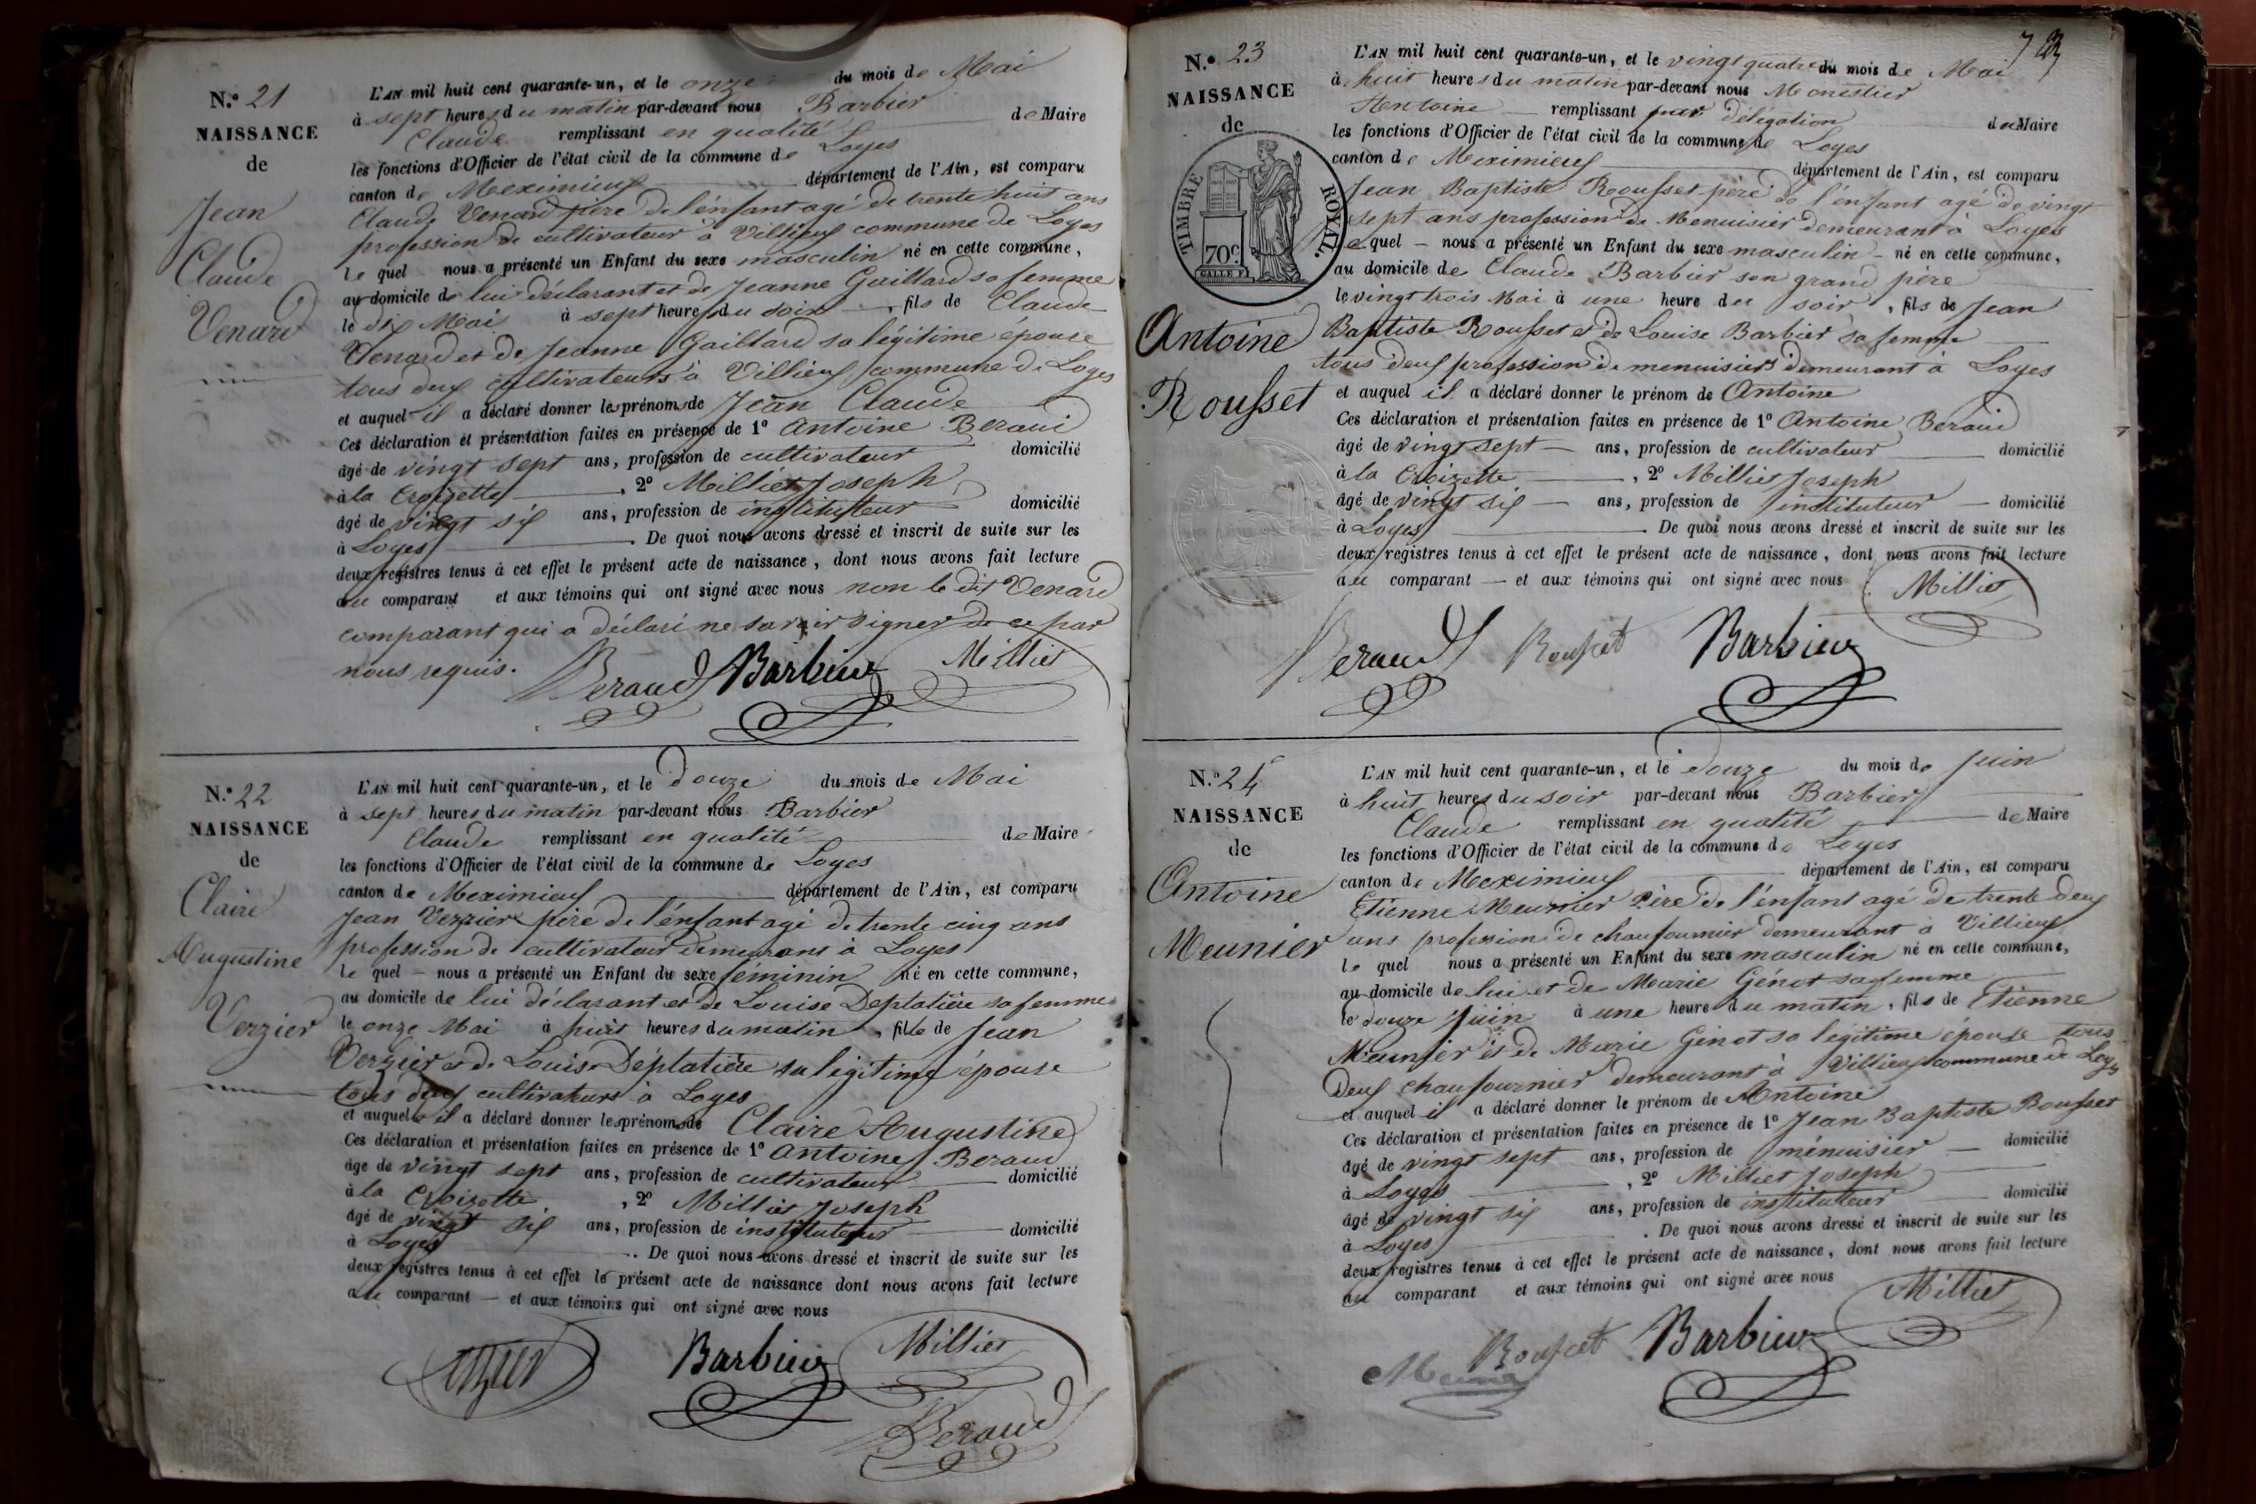 N.o 21
NAISSANCE
de
Jean
Claude
Venard
L'AN mil huit cent quarante-un, et le onze du mois de Mai
à sept heures du matin par-devant nous Barbier
Claude remplissant en qualité de Maire
les fonctions d'Officier de l'état civil de la commune de Loyes
canton de Meximieux département de l'Ain, est comparu
Claude Venard père de l'énfant agé de trente huit ans
profession de cultivateur à Villieux commune de Loyes
le quel nous a présenté un Enfant du sexe masculin né en cette commune,
au domicile de lui déclarant et de Jeanne Gaillard sa femme
le dix Mai à sept heures du soir, fils de Claude
Venard et de Jeanne Gaillard sa légitime épouse
tous deux cultivateurs à Villieux commune de Loyes
et auquel il a déclaré donner les prénoms de Jean Claude
Ces déclaration et présentation faites en présence de 1o Antoine Beraud
âgé de vingt sept ans, profession de cultivateur domicilié
à la Croizette, 2o Milliet Joseph
âgé de vingt six ans, profession de instituteur domicilié
à Loyes. De quoi nous avons dressé et inscrit de suite sur les
deux registres tenus à cet effet le présent acte de naissance, dont nous avons fait lecture
au comparant et aux témoins qui ont signé avec nous non le dit Venard
comparant qui a déclaré ne savoir signer de ce par
nous requis.
Beraud Barbier Milliet
N.o 22
NAISSANCE
de
Claire
Augustine
Verzier
L'AN mil huit cent quarante-un, et le douze du mois de Mai
à sept heures du matin par-devant nous Barbier
Claude remplissant en qualité de Maire
les fonctions d'Officier de l'état civil de la commune de Loyes
canton de Meximieux département de l'Ain, est comparu
Jean Verzier père de l'énfant agé de trente cinq ans
profession de cultivateur demeurant à Loyes
le quel — nous a présenté un Enfant du sexe féminin né en cette commune,
au domicile de lui déclarant et de Louise Déplatière sa femme
le onze Mai à huit heures du matin, fille de Jean
Verzier et de Louise Déplatière sa légitime épouse
tous deux cultivateurs à Loyes
et auquel il a déclaré donner les prénoms de Claire Augustine
Ces déclaration et présentation faites en présence de 1o Antoine Beraud
âgé de vingt sept ans, profession de cultivateur domicilié
à la Croizette, 2o Milliet Joseph
âgé de vingt six ans, profession de instituteur domicilié
à Loyes. De quoi nous avons dressé et inscrit de suite sur les
deux registres tenus à cet effet le présent acte de naissance dont nous avons fait lecture
au comparant — et aux témoins qui ont signé avec nous
Verzier Barbier Milliet
Beraud
N.o 23
NAISSANCE
de
TIMBRE ROYAL.
70c
Antoine
Rousset
L'AN mil huit cent quarante-un, et le vingt quatre du mois de Mai
à huit heures du matin par-devant nous Monestier
Antoine remplissant par délégation du Maire
les fonctions d'Officier de l'état civil de la commune de Loyes
canton de Meximieux département de l'Ain, est comparu
Jean Baptiste Rousset père de l'énfant agé de vingt
sept ans profession de Menuisier demeurant à Loyes
le quel — nous a présenté un Enfant du sexe masculin — né en cette commune,
au domicile de Claude Barbier son grand père
le vingt trois Mai à une heure du soir, fils de Jean
Baptiste Rousset et de Louise Barbier sa femme
tous deux profession de menuisier demeurant à Loyes
et auquel il a déclaré donner le prénom de Antoine
Ces déclaration et présentation faites en présence de 1o Antoine Beraud
âgé de vingt sept — ans, profession de cultivateur domicilié
à la Croizette, 2o Milliet Joseph
âgé de vingt six — ans, profession de instituteur — domicilié
à Loyes. De quoi nous avons dressé et inscrit de suite sur les
deux registres tenus à cet effet le présent acte de naissance, dont nous avons fait lecture
au comparant — et aux témoins qui ont signé avec nous Milliet
Beraud Rousset Barbier
N.o 24
NAISSANCE
de
Antoine
Meunier
L'AN mil huit cent quarante-un, et le douze du mois de Juin
à huit heures du soir par-devant nous Barbier
Claude remplissant en qualité de Maire
les fonctions d'Officier de l'état civil de la commune de Loyes
canton de Meximieux département de l'Ain, est comparu
Etienne Meunier père de l'énfant agé de trente deux
ans profession de chaufournier demeurant à Villieux
le quel nous a présenté un Enfant du sexe masculin né en cette commune,
au domicile de lui et de Marie Génot sa femme
le douze Juin à une heure du matin, fils de Etienne
Meunier et de Marie Génot sa légitime épouse tous
Deux chaufournier demeurant à Villieux commune de Loyes
et auquel il a déclaré donner le prénom de Antoine
Ces déclaration et présentation faites en présence de 1o Jean Baptiste Rousset
âgé de vingt sept ans, profession de ménuisier — domicilié
à Loyes, 2o Milliet Joseph
âgé de vingt six ans, profession de instituteur domicilié
à Loyes. De quoi nous avons dressé et inscrit de suite sur les
deux registres tenus à cet effet le présent acte de naissance, dont nous avons fait lecture
au comparant et aux témoins qui ont signé avec nous Milliet
Rousset Barbier